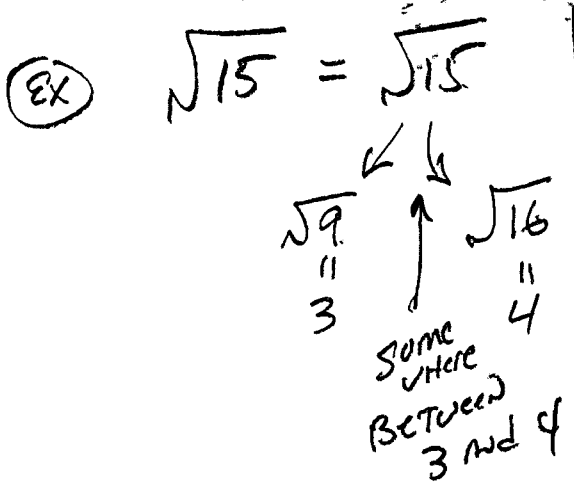 Ex √15 = √15
√9 √16
= =
3 4
Somewhere
Between
3 and 4